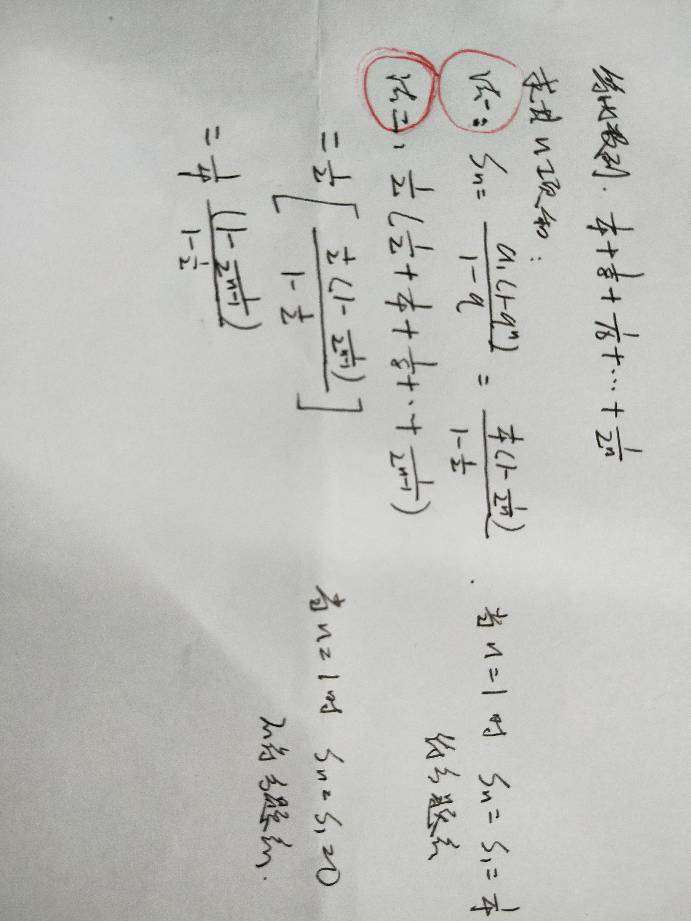 等比数列. 1/4 + 1/8 + 1/16 + … + 1/2ⁿ
求其n项和:
法一: Sn = a₁(1-qⁿ)/(1-q) = 1/4(1-1/2ⁿ)/(1-1/2) . 当n=1时 Sn = S₁ = 1/4
符合题意
法二, 1/2 (1/2 + 1/4 + 1/8 + … + 1/2ⁿ⁻¹)
= 1/2 [ 1/2(1-1/2ⁿ⁻¹)/(1-1/2) ] 当n=1时 Sn = S₁ = 0
不符合题意.
= 1/4 (1-1/2ⁿ⁻¹)/(1-1/2)